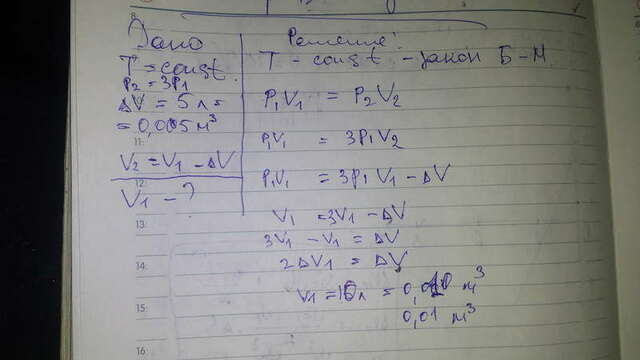 Дано
T = const.
P₂ = 3P₁
ΔV = 5 л =
= 0,005 м³
V₂ = V₁ - ΔV
V₁ - ?
Решение:
T - const - закон Б-М
P₁V₁ = P₂V₂
P₁V₁ = 3P₁V₂
P₁V₁ = 3P₁V₁ - ΔV
V₁ = 3V₁ - ΔV
3V₁ - V₁ = ΔV
2ΔV₁ = ΔV
V₁ = 10 л = 0,010 м³
0,01 м³
11:
12:
13:
14:
15:
16: